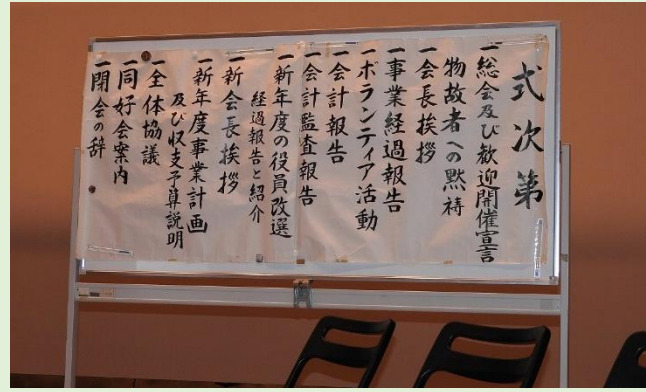 式次第
一総会及び歓迎開催宣言
物故者への黙祷
一会長挨拶
一事業経過報告
一ボランティア活動
一会計報告
一会計監査報告
一新年度の役員改選
経過報告と紹介
一新会長挨拶
一新年度事業計画
及び収支予算説明
一全体協議
一同好会案内
一閉会の辞